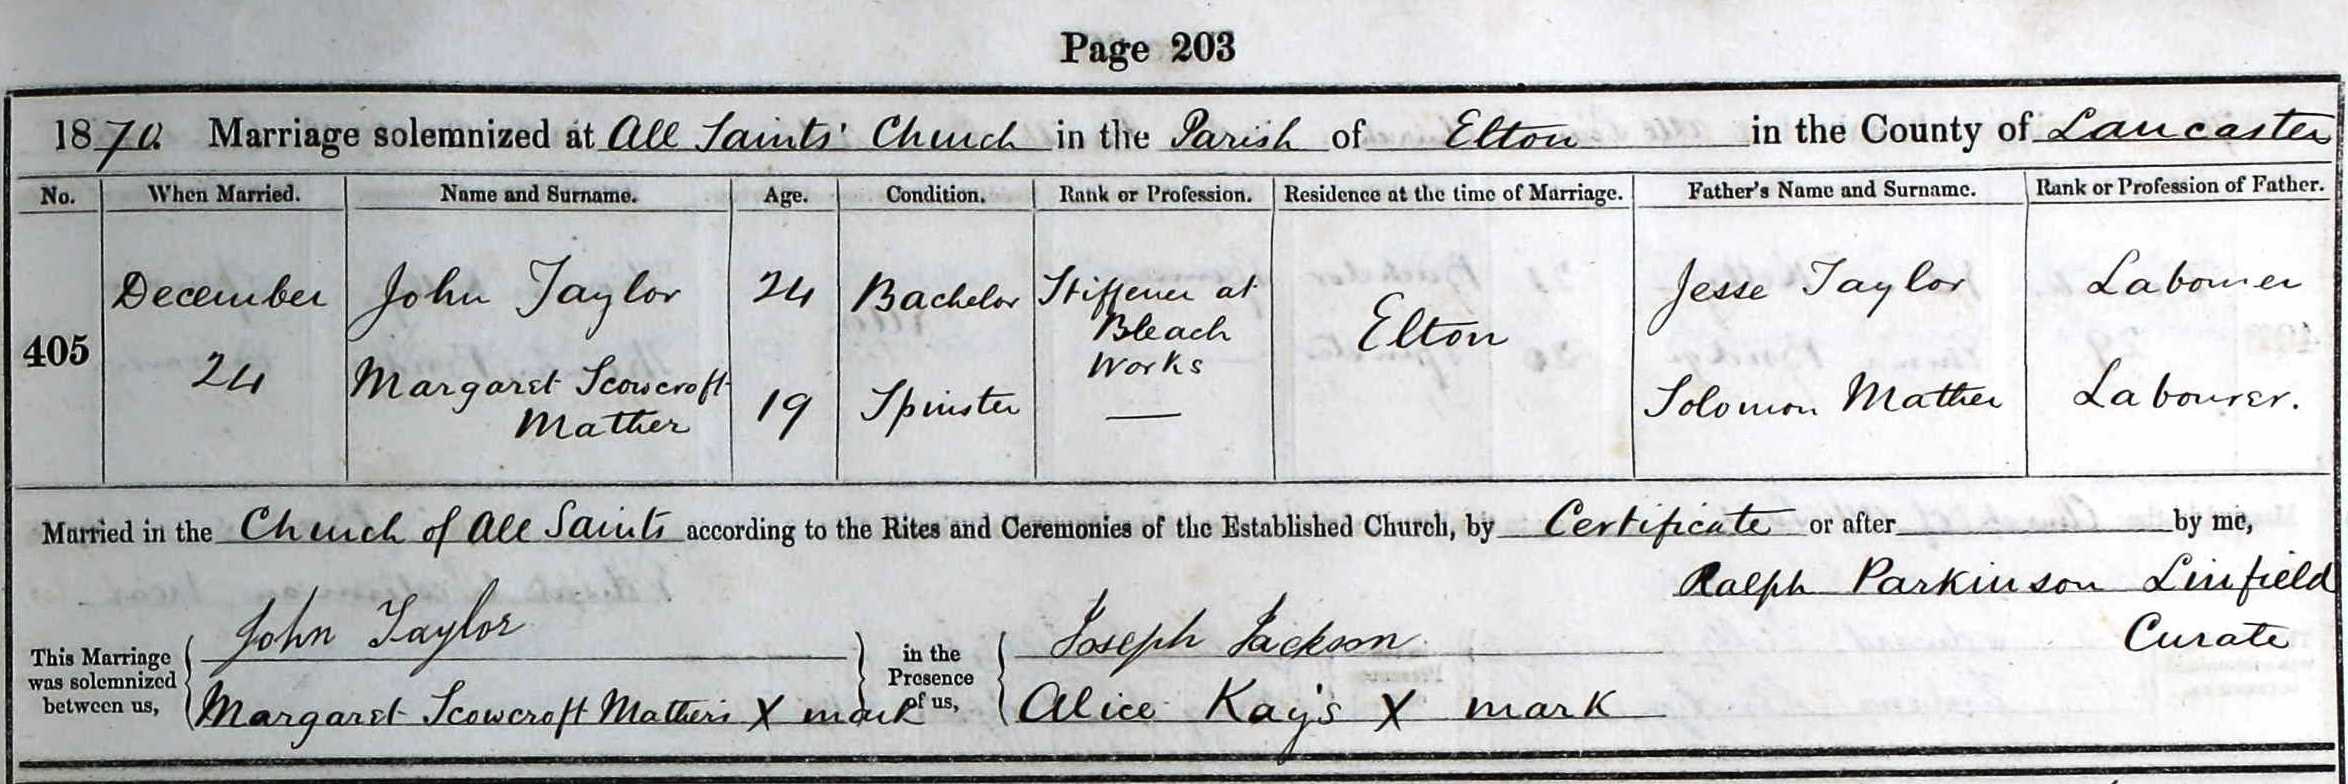 Page 203
1870 Marriage solemnized at All Saints' Church in the Parish of Elton in the County of Lancaster
No. When Married. Name and Surname. Age. Condition. Rank or Profession. Residence at the time of Marriage. Father's Name and Surname. Rank or Profession of Father.
405 December 24 John Taylor 24 Bachelor Stiffener at Bleach Works Elton Jesse Taylor Labourer
Margaret Scowcroft Mather 19 Spinster — Solomon Mather Labourer.
Married in the Church of All Saints according to the Rites and Ceremonies of the Established Church, by Certificate or after by me,
Ralph Parkinson Linfield
Curate
This Marriage was solemnized between us, John Taylor in the Presence of us, Joseph Jackson
Margaret Scowcroft Mather's X mark Alice Kay's X mark